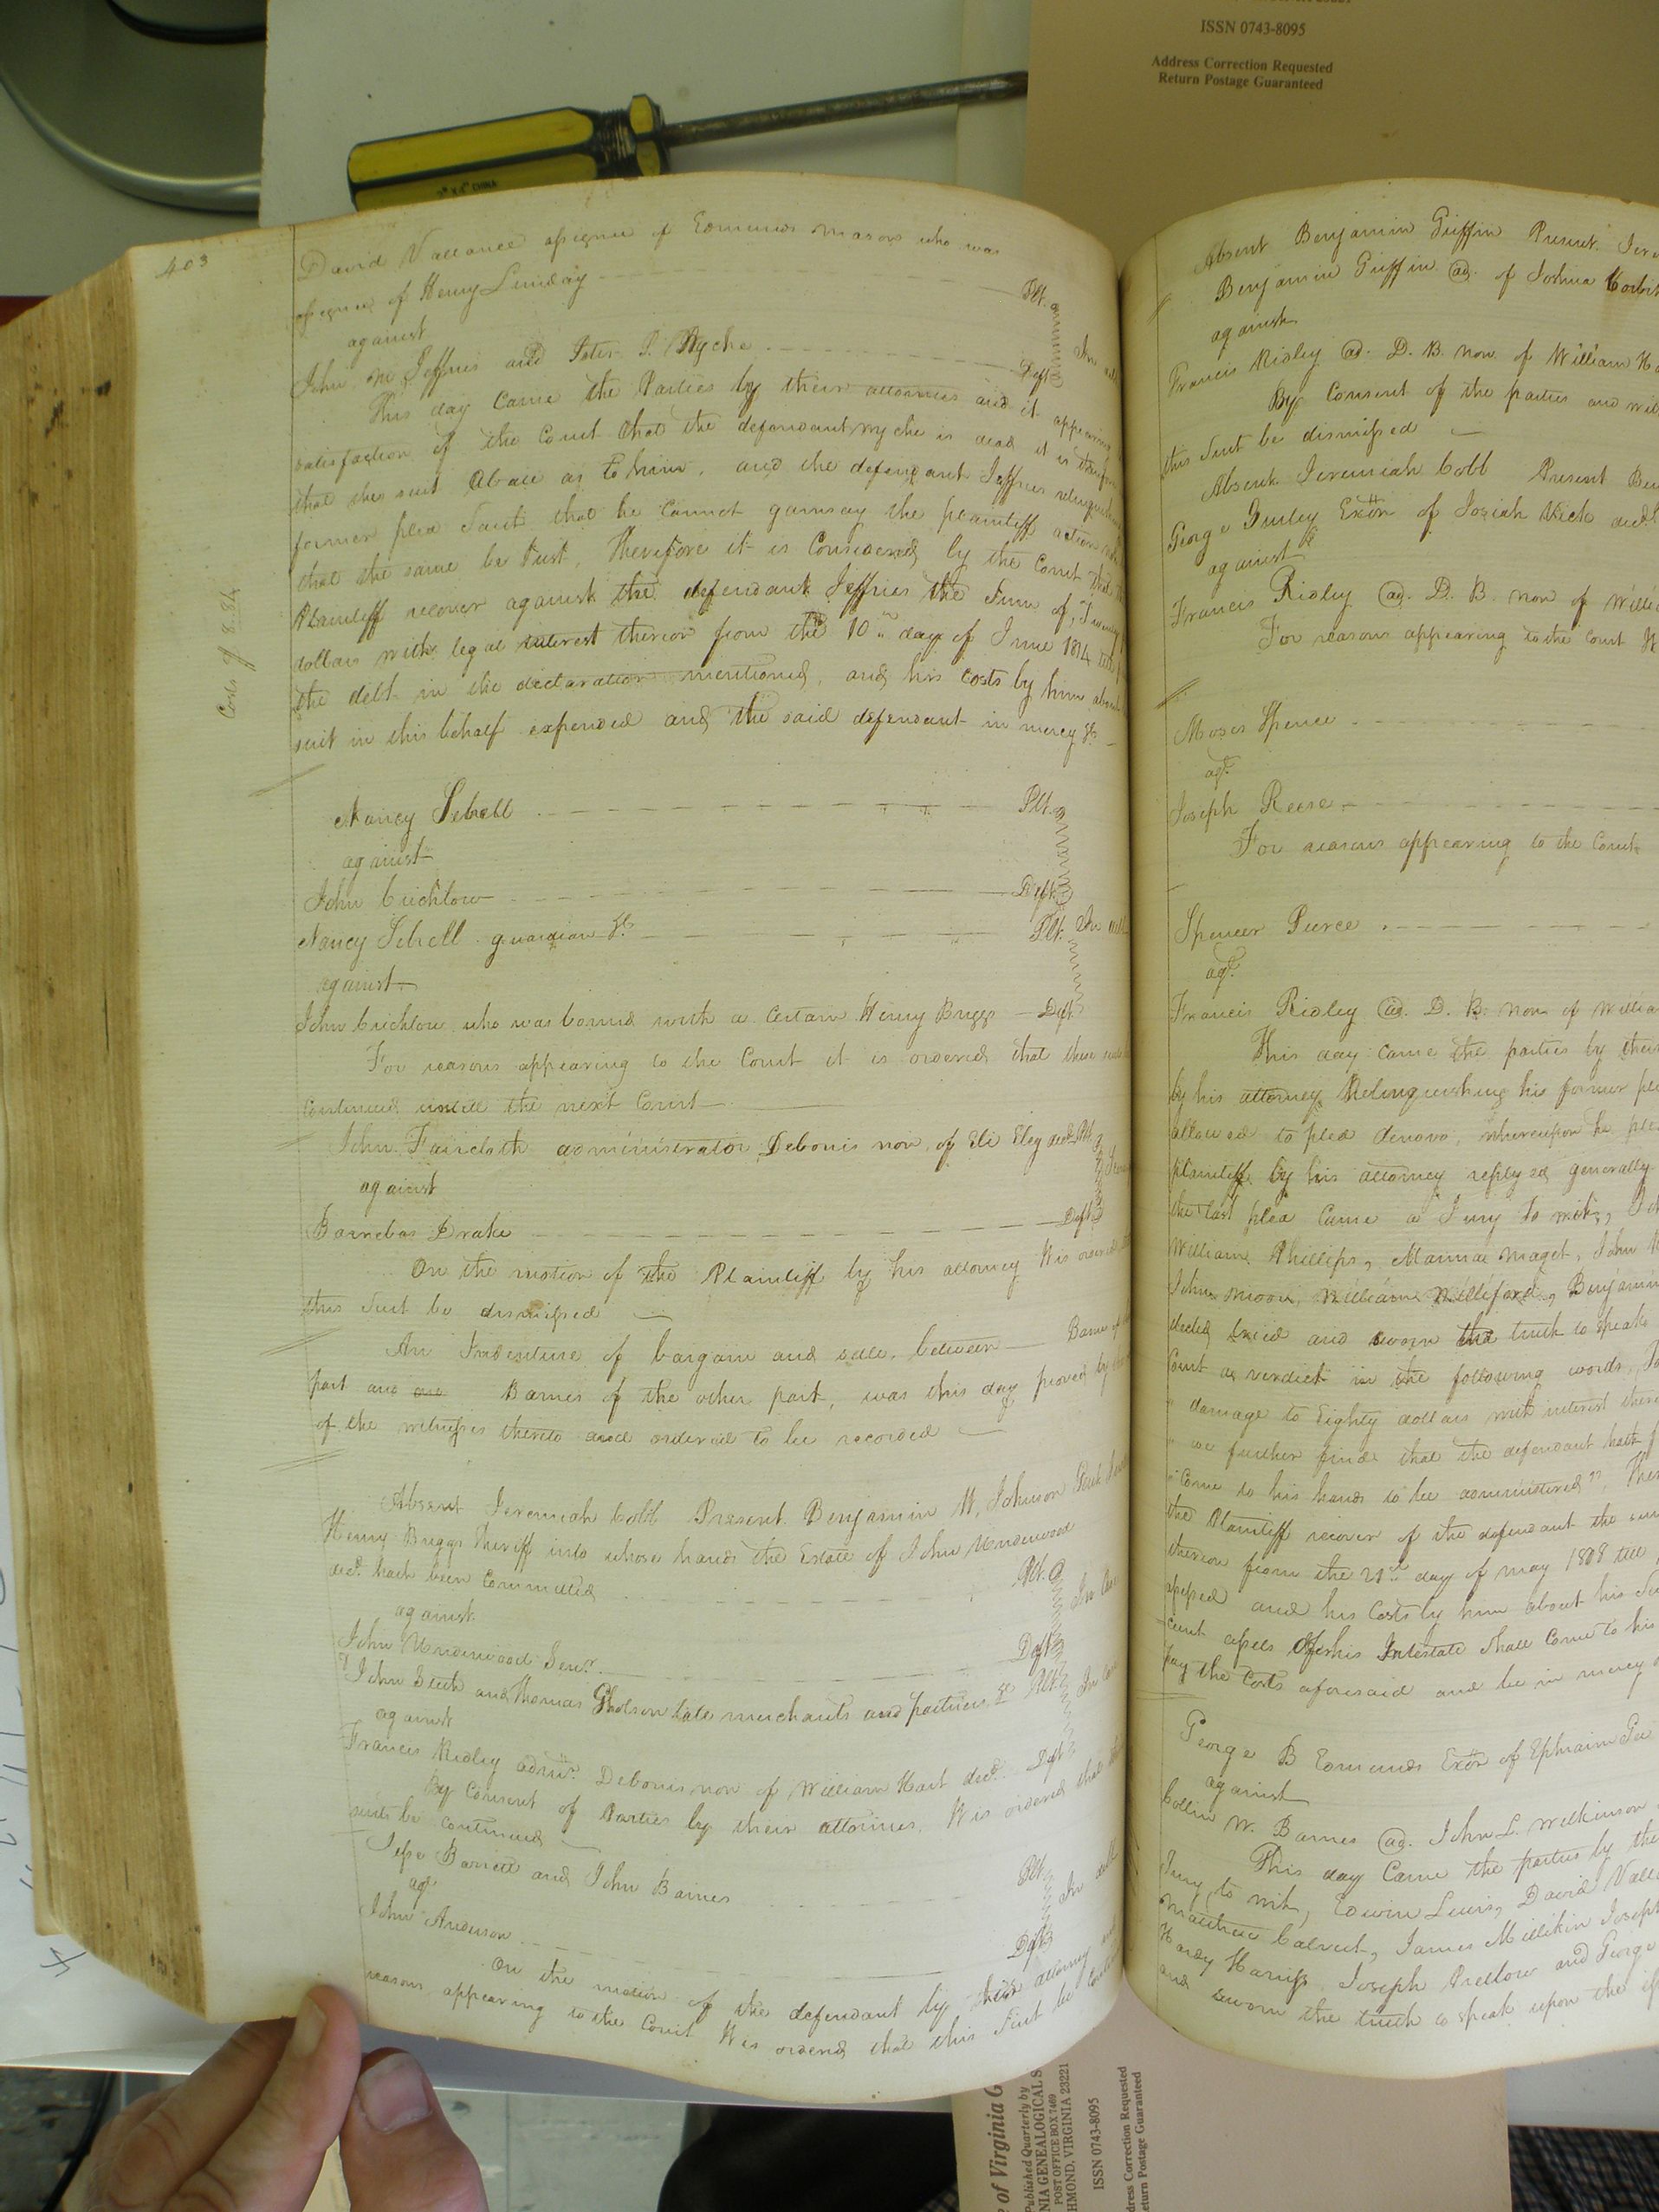 ISSN 0743-8095
Address Correction Requested
Return Postage Guaranteed
403
David Vallance assignee of Edmunds Mason who was
assignee of Henry Lunday Plt.
against
John M Jeffries and Peter P. Wyche Deft
This day came the Parties by their attornies and it appearing
satisfaction of the Court that the defendant Wyche is dead it is therefore
that this suit abate as to him, and the defendant Jeffries relinquishing
former plea saith that he cannot gainsay the plaintiff action
that the same be Just, Therefore it is Considered by the Court that the
Plaintiff recover against the defendant Jeffries the Sum of, Twenty
dollars with legal interest thereon from the 10th day of June 1814 till
the debt in the declaration mentioned, and his costs by him about
suit in this behalf expended and the said defendant in mercy &c
Costs $ 8.84
Nancy Sebrell Plt.
against
John Crichlow Deft
Nancy Sebrell guardian &c Plt. In
against
John Crichlow who was bound with a Certain Henry Briggs Deft
For reasons appearing to the Court it is ordered that these suits
Continued untill the next Court
John Faircloth administrator Debonis non, of Eli Eley decd. Plt.
against
Barnebas Drake Deft
On the motion of the Plaintiff by his attorney It is ordered
this Suit be dismissed
An Indenture of bargain and sale, between Barnes of
part and one Barnes of the other part, was this day proved by
of the witnesses thereto and ordered to be recorded
Absent Jeremiah Cobb Present Benjamin W, Johnson Gent
Henry Briggs Sheriff into whose hands the Estate of John Underwood
decd. hath been Committed Plt.
against
John Underwood Senr. Deft
John Bush and Thomas Gholson late merchants and partners &c Plt.
against
Francis Ridley admr. Debonis non of William Hart decd. Deft
By Consent of Parties by their attornies, It is ordered that
suits be Continued
Jesse Barrett and John Barnes Plt.
agt
John Anderson Deft
On the motion of the defendant by their attorney and
reasons appearing to the Court It is ordered that this Suit be
Absent Benjamin Griffin Present
Benjamin Griffin ad. of Joshua
against
Francis Ridley ad. D. B. non. of William
By Consent of the parties and
this Suit be dismissed
Absent Jeremiah Cobb Present
George Gurley Exor of Josiah Vick decd
against
Francis Ridley ad. D. B. non of
For reasons appearing to the Court
Moses Spence
agt.
Joseph Reese
For reasons appearing to the Court
Spencer Pierce
agt.
Francis Ridley ad. D. B. non of
This day came the parties by their
by his attorney Relinquishing his former
allowed to plea denovo, whereupon he
plaintiff by his attorney replyed generally
the last plea Came a Jury to wit;
William Phillips, Mannae Maget, John
John Moore, William Williford, Benjamin
elected tried and sworn the truth to speak
Court a verdict in the following words,
damage to Eighty dollars with interest
we further find that the defendant hath
Come to his hands to be administered",
the Plaintiff recover of the defendant the
thereon from the 21st day of may 1808 till
assessed and his Costs by him about his
cient assets of his Intestate shall Come to his
pay the Costs aforesaid and be in mercy
George B Edmunds Exor of Ephraim
against
Collin W. Barnes ad. John L. Wilkinson
This day Came the parties by
Jury to wit, Edwin Lewis, David
Matthew Calvert, James Millikin Joseph
Hardy Harriss, Joseph Prettow and George
and sworn the truth to speak upon the
of Virginia G
Published Quarterly by
NIA GENEALOGICAL S
POST OFFICE BOX 7469
HMOND, VIRGINIA 23221
ISSN 0743-8095
dress Correction Requested
eturn Postage Guaranteed